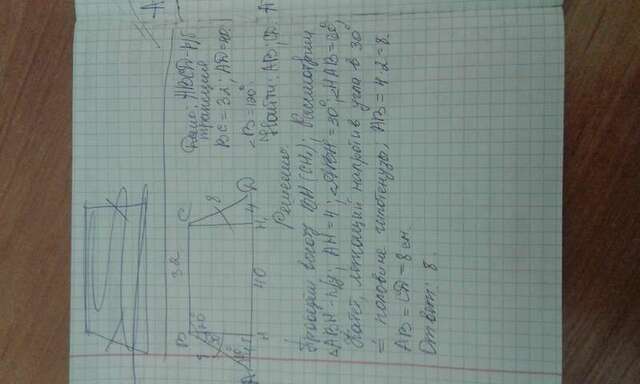 32
B C
120°
30°
8
A 60° 4 H 40 H₁ 4 D
Дано: ABCD - р/б
трапеция
BC = 32; AD = 40.
∠B = 120°
Найти: AB; CD.
Решение.
Проведем высоту BH (CH₁); Рассмотрим
△ABH - п/у; AH = 4; ∠ABH = 30°; ∠HAB = 60°;
Катет, лежащий напротив угла в 30°
= половине гипотенузы; AB = 4·2 = 8.
AB = CD = 8 см.
Ответ: 8.